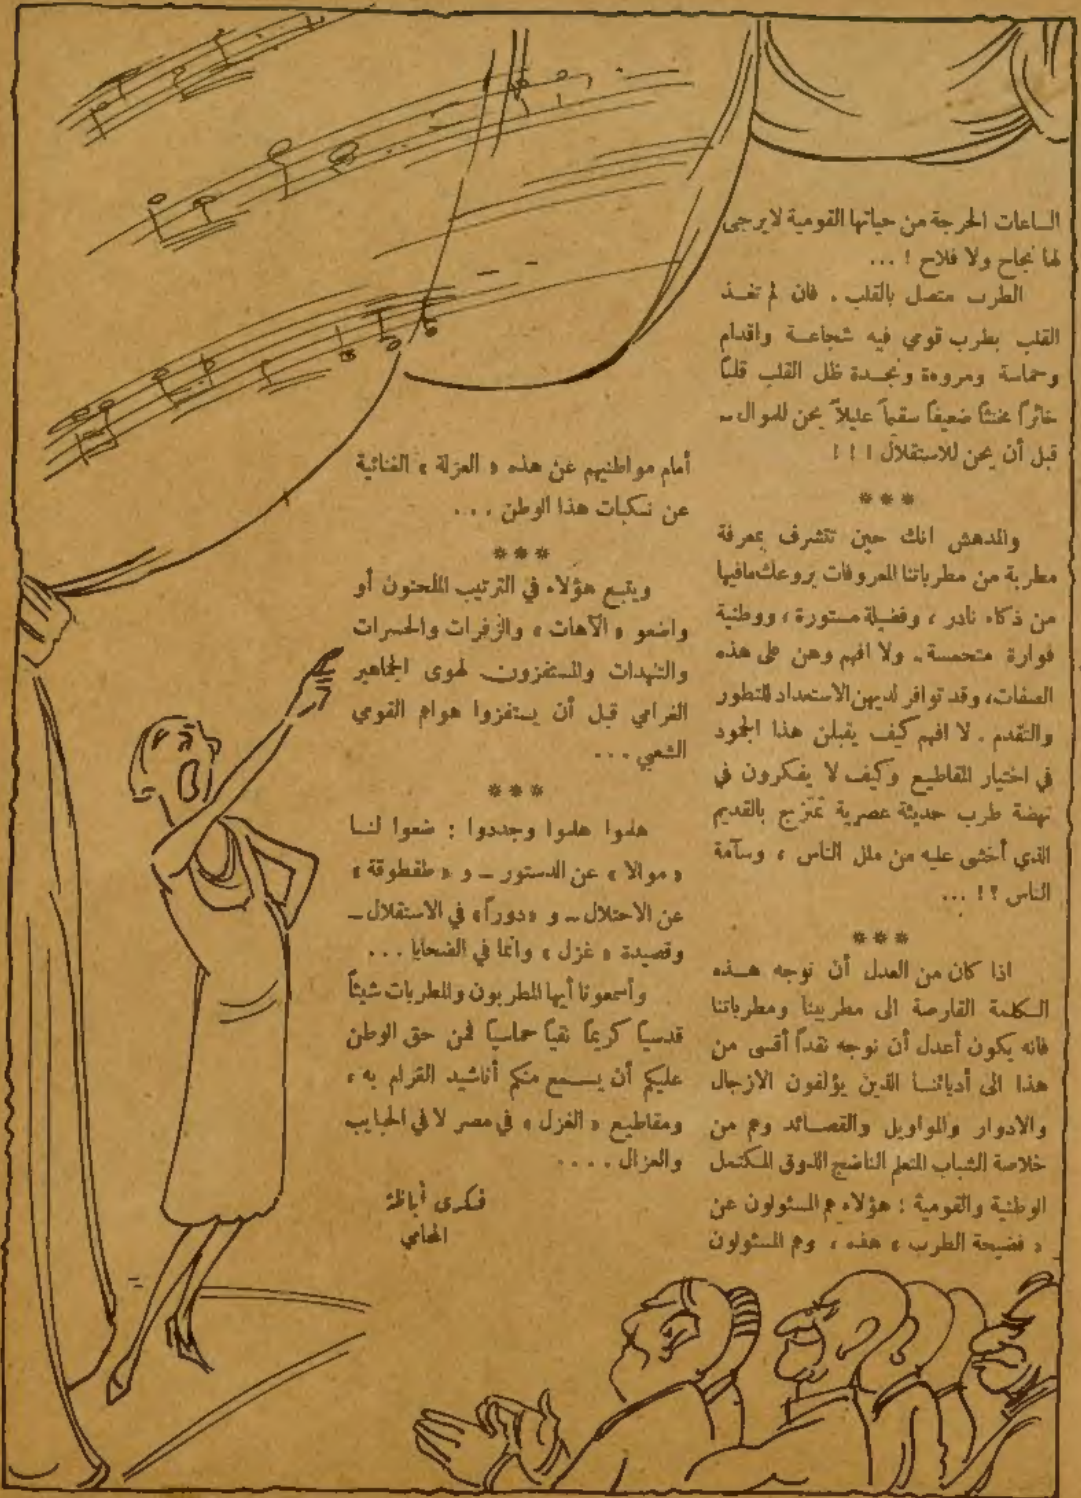 الساعات الحرجة من حياتها القومية لا يرجى
لها نجاح ولا فلاح ! ...
الطرب متصل بالقلب . فان لم تغذ
القلب بطرب قومي فيه شجاعة واقدام
وحماسة ومروءة ونجدة ظل القلب قلباً
خائراً مخنثاً ضعيفاً سقيماً عليلاً يحن للموال ـ
قبل أن يحن للاستقلال ! ! !
***
والمدهش انك حين تتشرف بمعرفة
مطربة من مطرباتنا المعروفات يروعك مافيها
من ذكاء نادر ، وفضيلة مستورة ، ووطنية
فوارة متحمسة . ولا افهم وهن على هذه
الصفات ، وقد توافر لديهن الاستعداد للتطور
والتقدم . لا افهم كيف يقبلن هذا الجمود
في اختيار المقاطيع وكيف لا يفكرون في
نهضة طرب حديثة عصرية تمتزج بالقديم
الذي أخشى عليه من ملل الناس ، وسآمة
الناس ؟ ! ...
***
اذا كان من العدل أن نوجه هذه
الكلمة القارصة الى مطربينا ومطرباتنا
فانه يكون أعدل أن نوجه نقداً أقسى من
هذا الى أدبائنا الذين يؤلفون الازجال
والادوار والمواويل والقصائد وهم من
خلاصة الشباب المتعلم الناضج الذوق المكتمل
الوطنية والقومية : هؤلاء هم المسئولون عن
« فضيحة الطرب » هذه ، وهم المسئولون
أمام مواطنيهم عن هذه « العزلة » الغنائية
عن نكبات هذا الوطن ...
***
ويتبع هؤلاء في الترتيب الملحنون أو
واضعو « الآهات » والزفرات والحسرات
والتنهدات والمستفزون لهوى الجماهير
الغرامي قبل أن يستفزوا هواهم القومي
الشعبي ...
***
هلموا هلموا وجددوا : ضعوا لنا
« موالا » عن الدستور ـ و « طقطوقة »
عن الاحتلال ـ و « دوراً » في الاستقلال ـ
وقصيدة « غزل » وانما في الضحايا ...
وأسمعونا أيها المطربون والمطربات شيئاً
قدسياً كريماً نقياً حماسياً فمن حق الوطن
عليكم أن يسمع منكم أناشيد الغرام به ،
ومقاطيع « الغزل » في مصر لا في الحبايب
والعزال ....
فكرى أباظة
المحامي